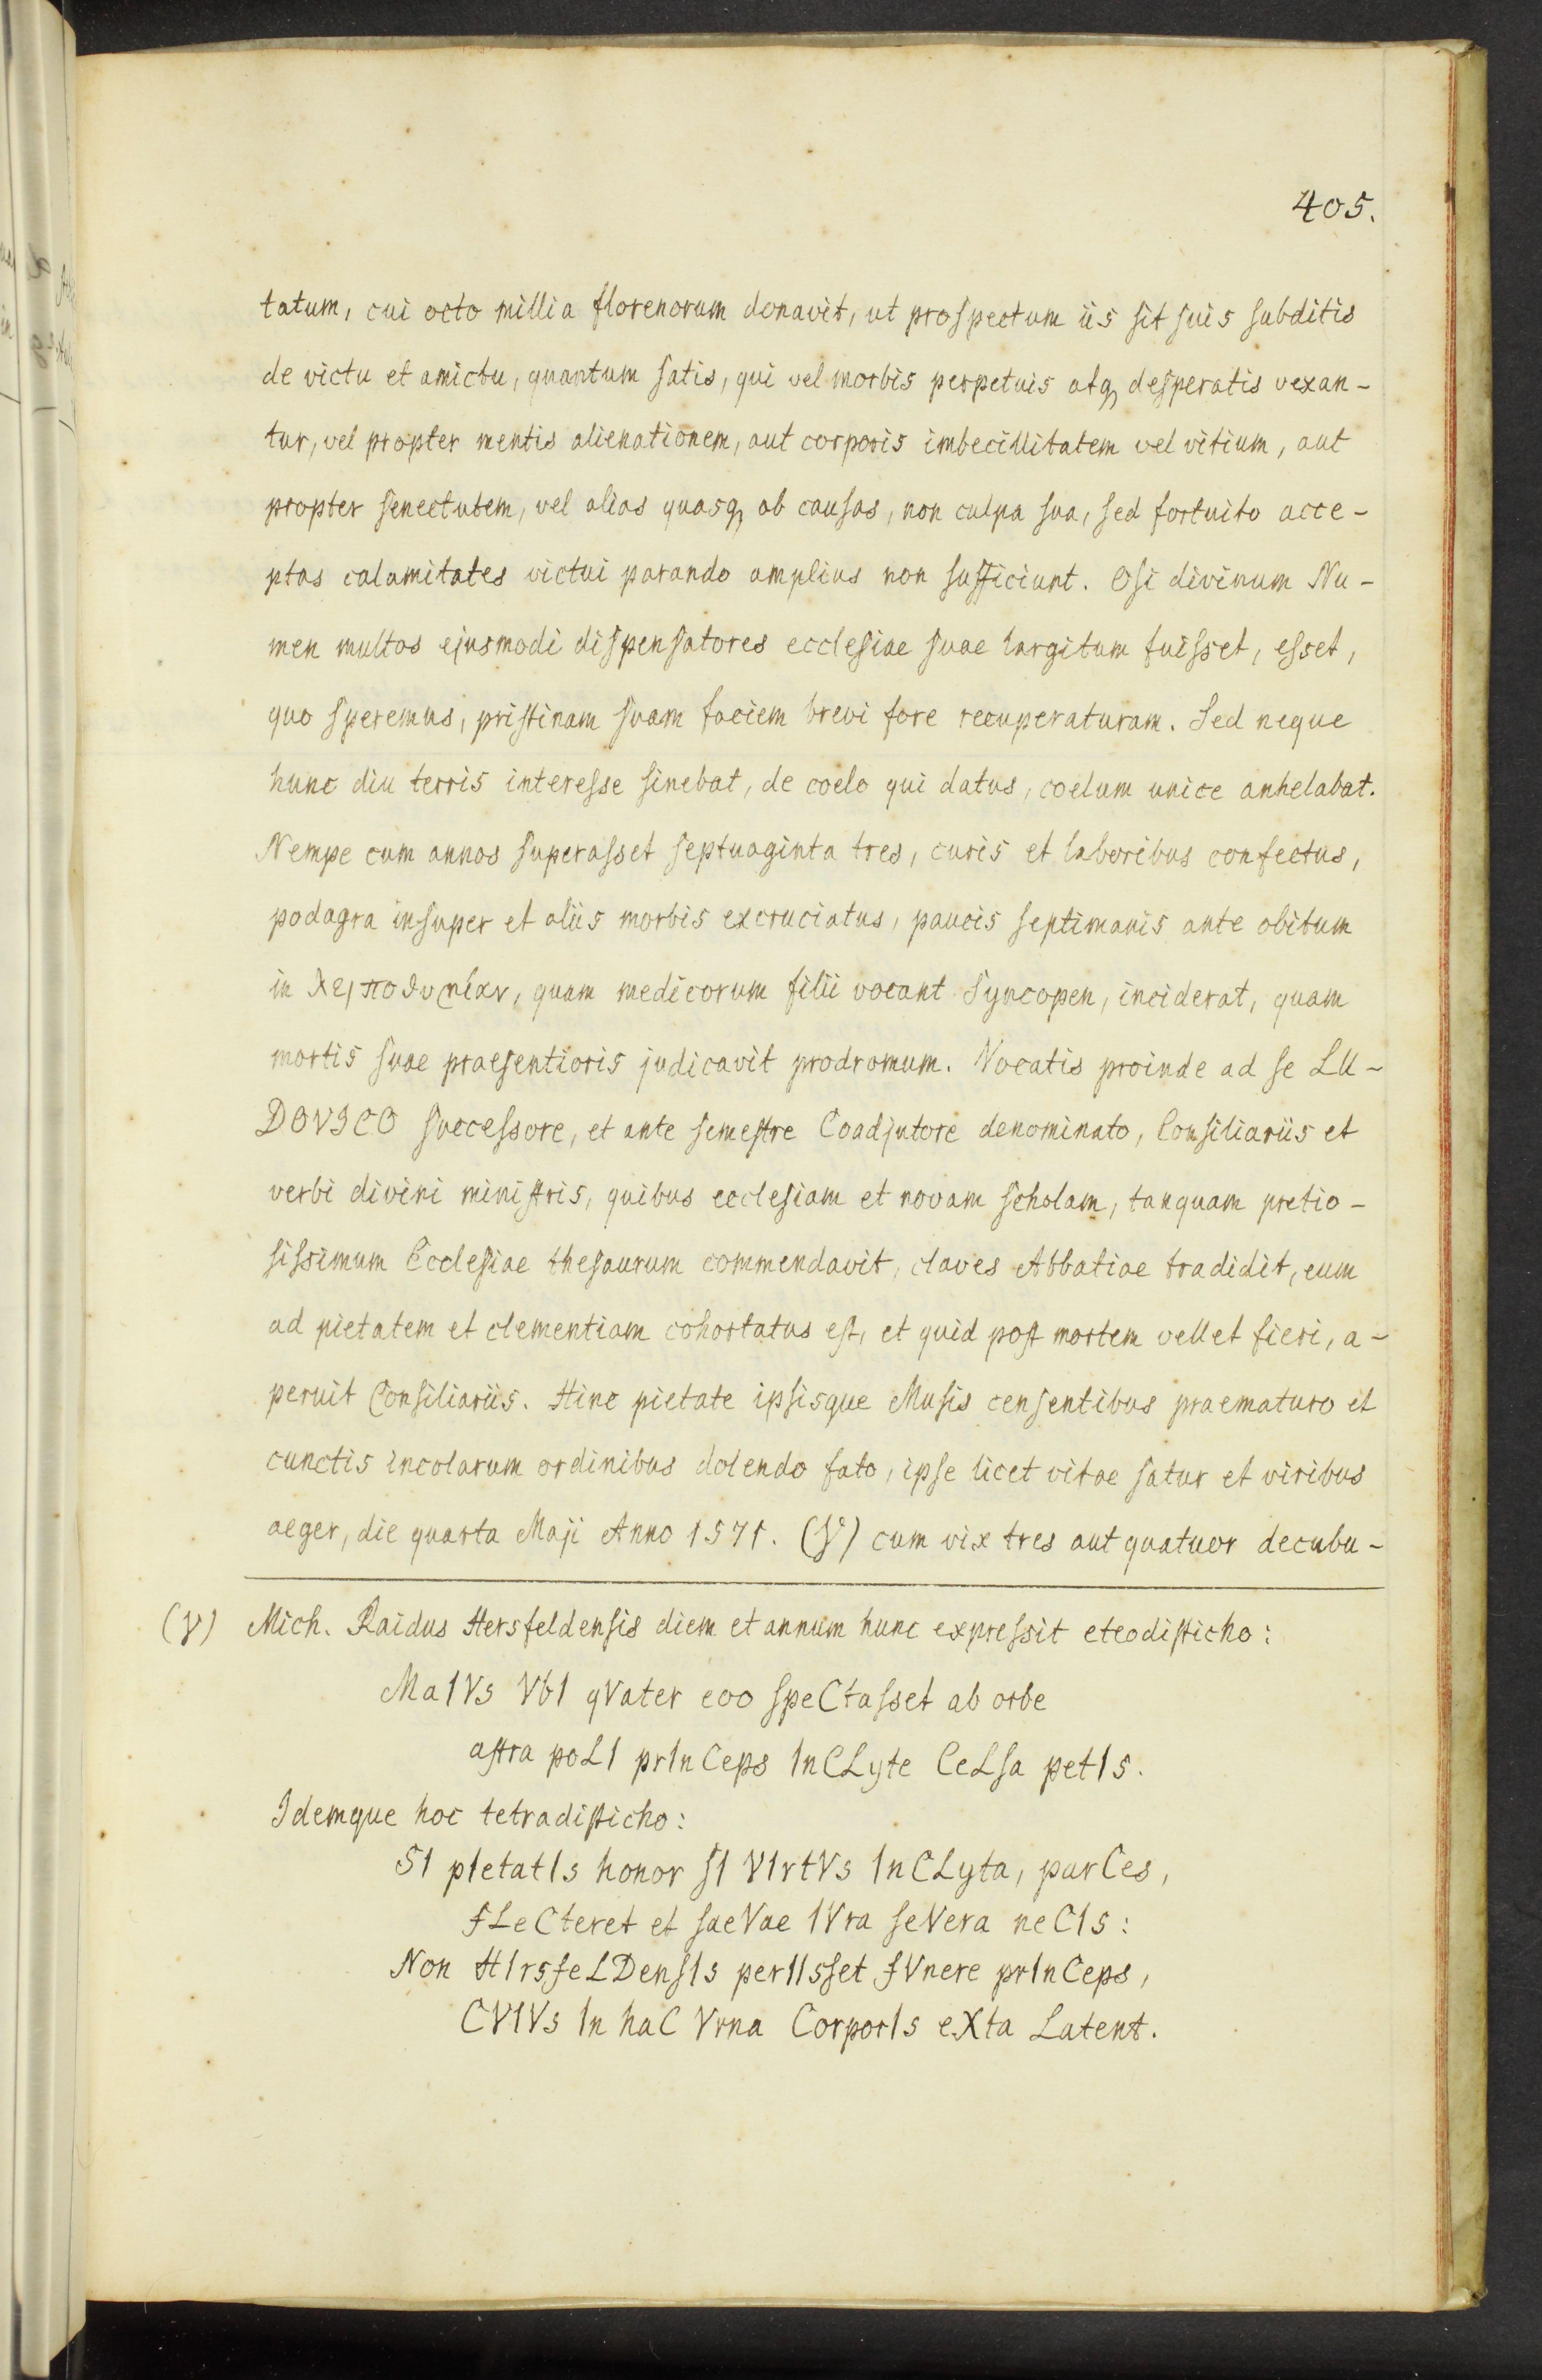 405.
tatum, cui octo millia florenorum donavit, ut prospectum iis sit suis subditis
de victu et amictu, quantum satis, qui vel morbis perpetuis atq, desperatis vexan-
tur, vel propter mentis alienationem, aut corporis imbecillitatem vel vitium, aut
propter senectutem, vel alias quasq, ob causas, non culpa sua, sed fortuito acce-
ptas calamitates victui parando amplius non sufficiunt. Osi divinum Nu-
men multos ejusmodi dispensatores ecclesiae suae largitum fuisset, esset,
quo speremus, pristinam suam faciem brevi fore recuperaturam. Sed neque
hunc diu terris interesse sinebat, de coelo qui datus, coelum unice anhelabat.
Nempe cum annos superasset septuaginta tres, curis et laboribus confectus,
podagra insuper et aliis morbis excruciatus, paucis septimanis ante obitum
in quam medicorum filii vocant Syncopen, inciderat, quam
mortis suae praesentioris judicavit prodromum. Vocatis proinde ad se LU-
DOVICO successore, et ante semestre Coadjutore denominato, Consiliariis et
verbi divini ministris, quibus ecclesiam et novam scholam, tanquam pretio-
sissimum Ecclesiae thesaurum commendavit, claves Abbatiae tradidit, eum
ad pietatem et clementiam cohortatus est, et quid post mortem vellet fieri, a-
peruit Consiliariis. Hinc pietate ipsisque Musis censentibus praematuro et
cunctis incolarum ordinibus dolendo fato, ipse licet vitae satur et viribus
aeger, die quarta Maji Anno 1571. (γ) cum vix tres aut quatuor decubu-
(γ) Mich. Raidus Hersfeldensis diem et annum hunc expressit eteodisticho:
MaIVs VbI qVater eoo speCtasset ab orbe
astra poLI prInCeps InCLyte CeLsa petIs.
Idemque hoc tetradisticho:
SI pIetatIs honor sI VIrtVs InCLyta, parCes,
fLeCteret et saeVae IVra seVera neCIs:
Non HIrsfeLDensIs perIIsset fVnere prInCeps,
CVIVs In haC Vrna CorporIs eXta Latent.